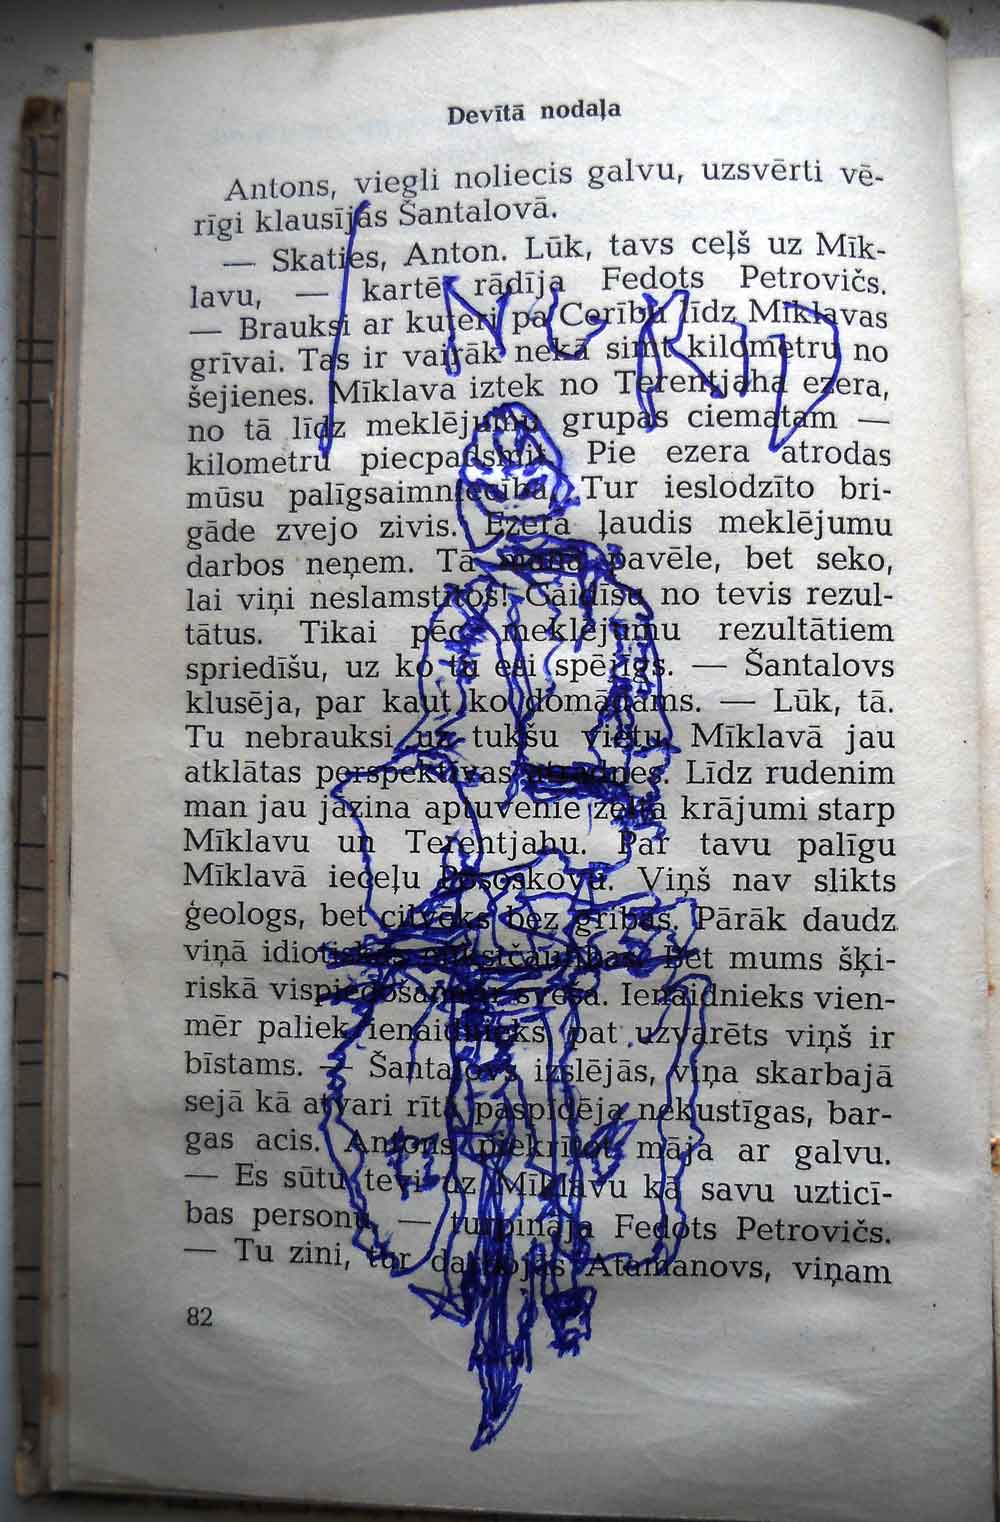 Devītā nodaļa
Antons, viegli noliecis galvu, uzsvērti vē-
rīgi klausījās Šantalovā.
— Skaties, Anton. Lūk, tavs ceļš uz Mīk-
lavu, — kartē rādīja Fedots Petrovičs.
— Brauksi ar kuteri pa Cerību līdz Mīklavas
grīvai. Tas ir vairāk nekā simt kilometru no
šejienes. Mīklava iztek no Terentjaha ezera,
no tā līdz meklējumu grupas ciematam —
kilometru piecpadsmit. Pie ezera atrodas
mūsu palīgsaimniecība. Tur ieslodzīto bri-
gāde zvejo zivis. Ezera ļaudis meklējumu
darbos neņem. Tā mana pavēle, bet seko,
lai viņi neslamstītos! Gaidīšu no tevis rezul-
tātus. Tikai pēc meklējumu rezultātiem
spriedīšu, uz ko tu esi spējīgs. — Šantalovs
klusēja, par kaut ko domādams. — Lūk, tā.
Tu nebrauksi uz tukšu vietu. Mīklavā jau
atklātas perspektīvas atradnes. Līdz rudenim
man jau jāzina aptuvenie zelta krājumi starp
Mīklavu un Terentjahu. Par tavu palīgu
Mīklavā ieceļu Pososkovu. Viņš nav slikts
ģeologs, bet cilvēks bez gribas. Pārāk daudz
viņā idiotiskās Bet mums šķi-
riskā sveša. Ienaidnieks vien-
mēr paliek ienaidnieks, pat uzvarēts viņš ir
bīstams. — Šantalovs izslējās, viņa skarbajā
sejā kā atvari rītā paspīdēja nekustīgas, bar-
gas acis. Antons piekrītot māja ar galvu.
— Es sūtu tevi uz Mīklavu kā savu uzticī-
bas personu, — turpināja Fedots Petrovičs.
— Tu zini, tur darbojas Atamanovs, viņam
82
INGRID